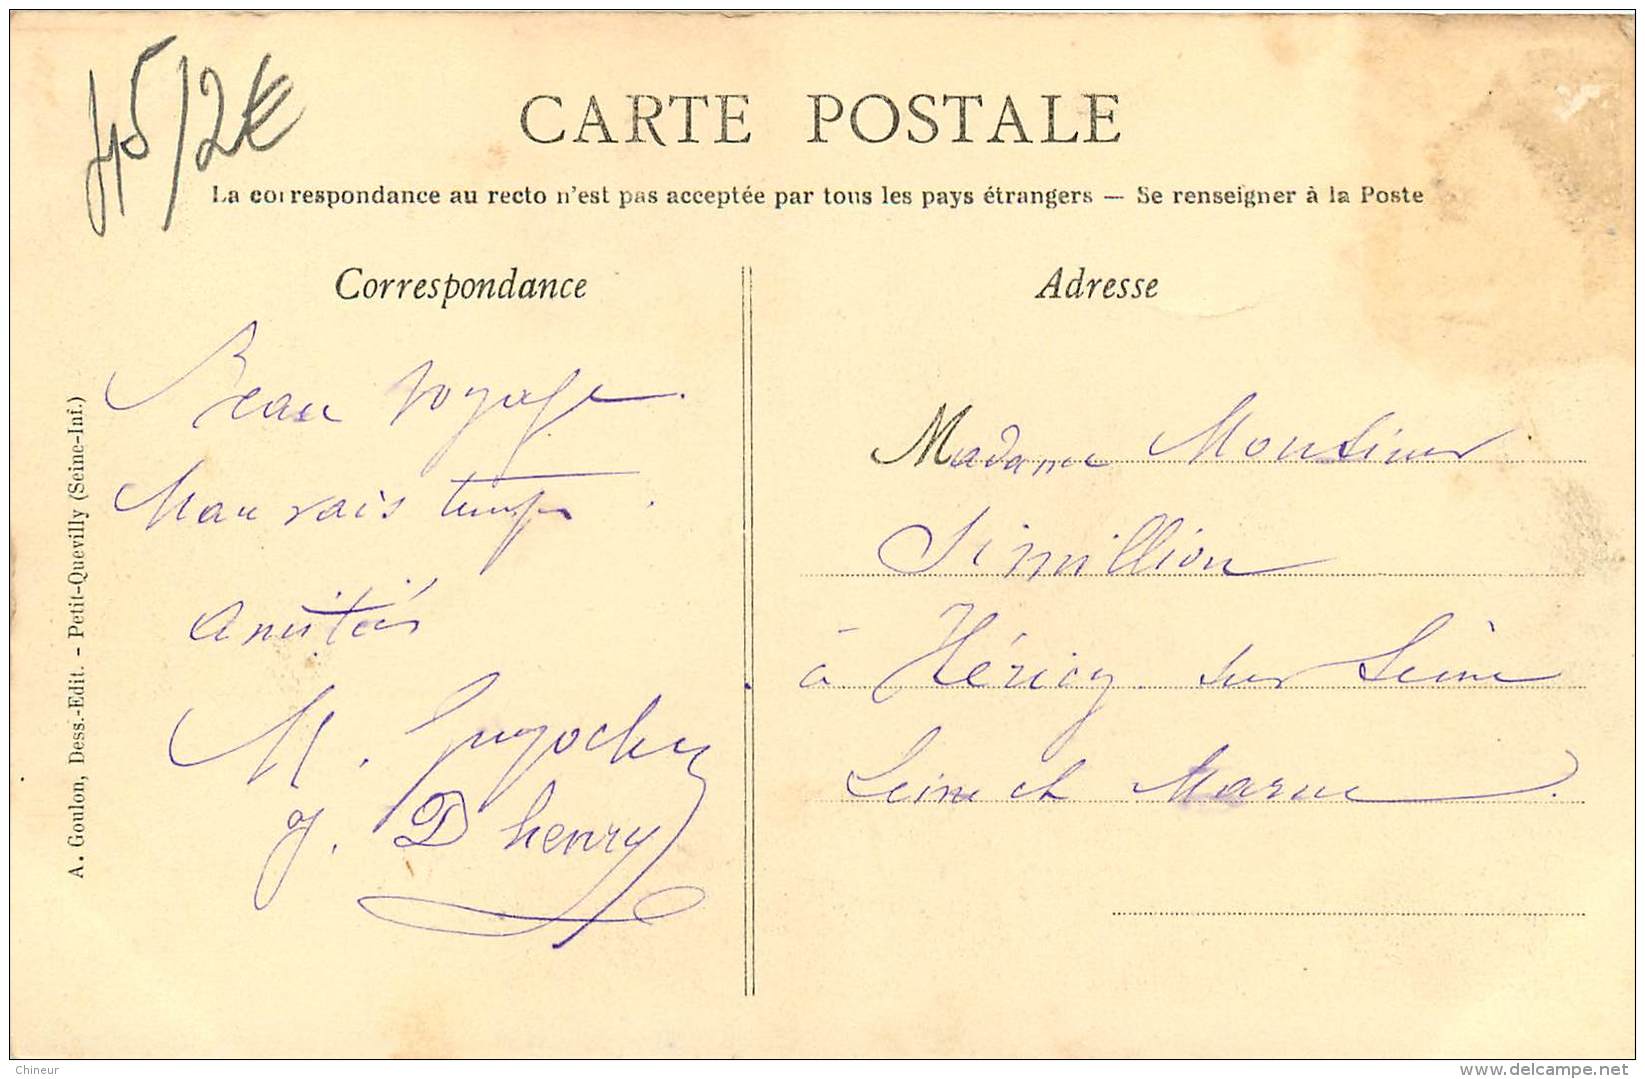 45/2€
CARTE POSTALE
La correspondance au recto n'est pas acceptée par tous les pays étrangers — Se renseigner à la Poste
Correspondance
Beau voyage.
Mauvais temps.
Amitiés
M.
J. Dhenry
A. Goulon, Dess.-Edit. - Petit-Quevilly (Seine-Inf.)
Adresse
Madame
Simillion
à Héricy sur Seine
Seine et Marne.
Chineur
www.delcampe.net